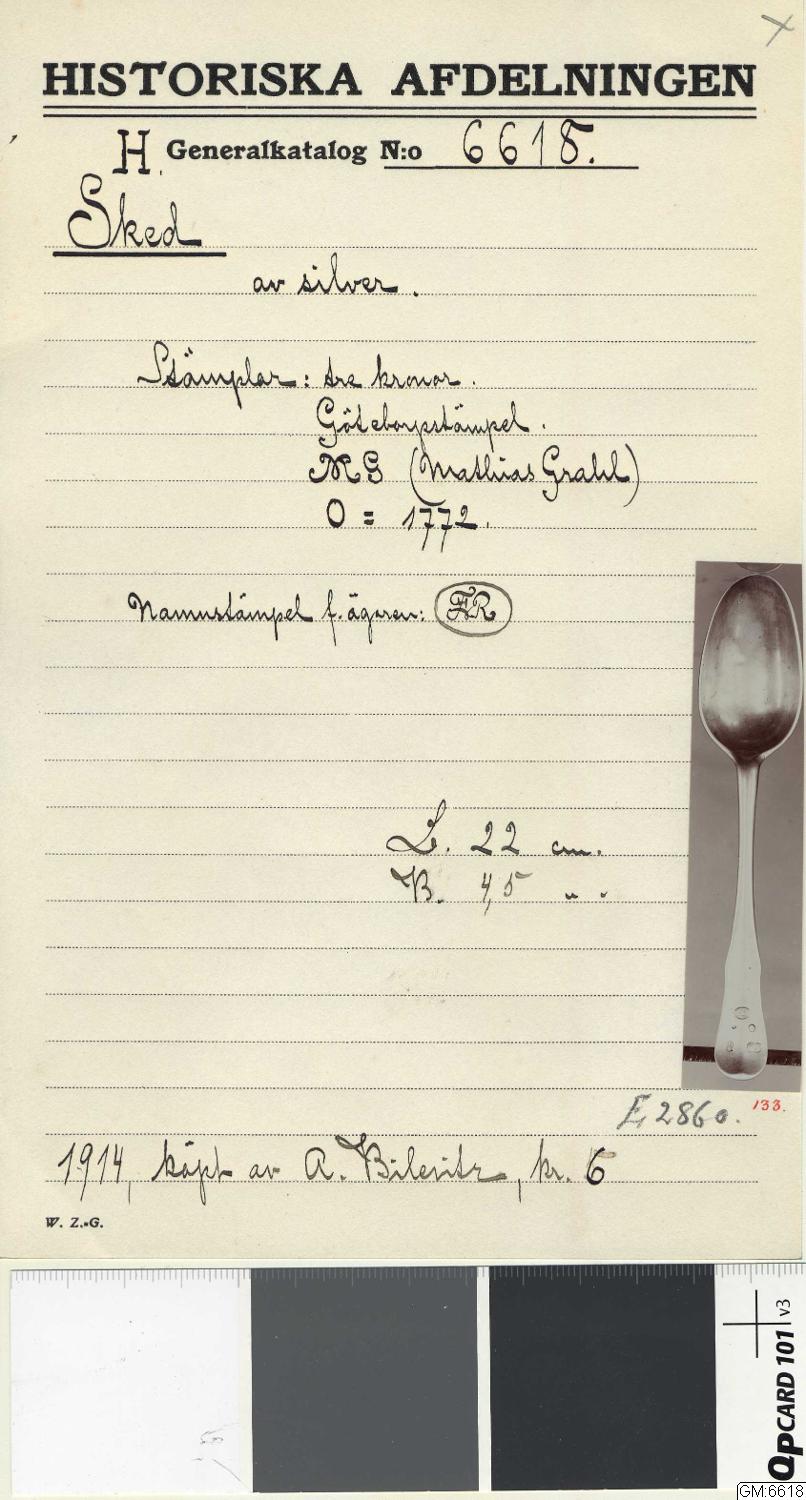 HISTORISKA AFDELNINGEN
H. Generalkatalog N:o 6618.
Sked
av silver.
Stämplar: tre kronor.
Göteborgstämpel.
MG (Mathias Grahl)
O = 1772.
Namnstämpel f. ägaren: FR
L. 22 cm.
B. 4,5 " "
E, 2860. 133.
1914, köpt av A. Bilevitz, kr. 6
W. Z.-G.
QPCARD 101 v3
GM:6618